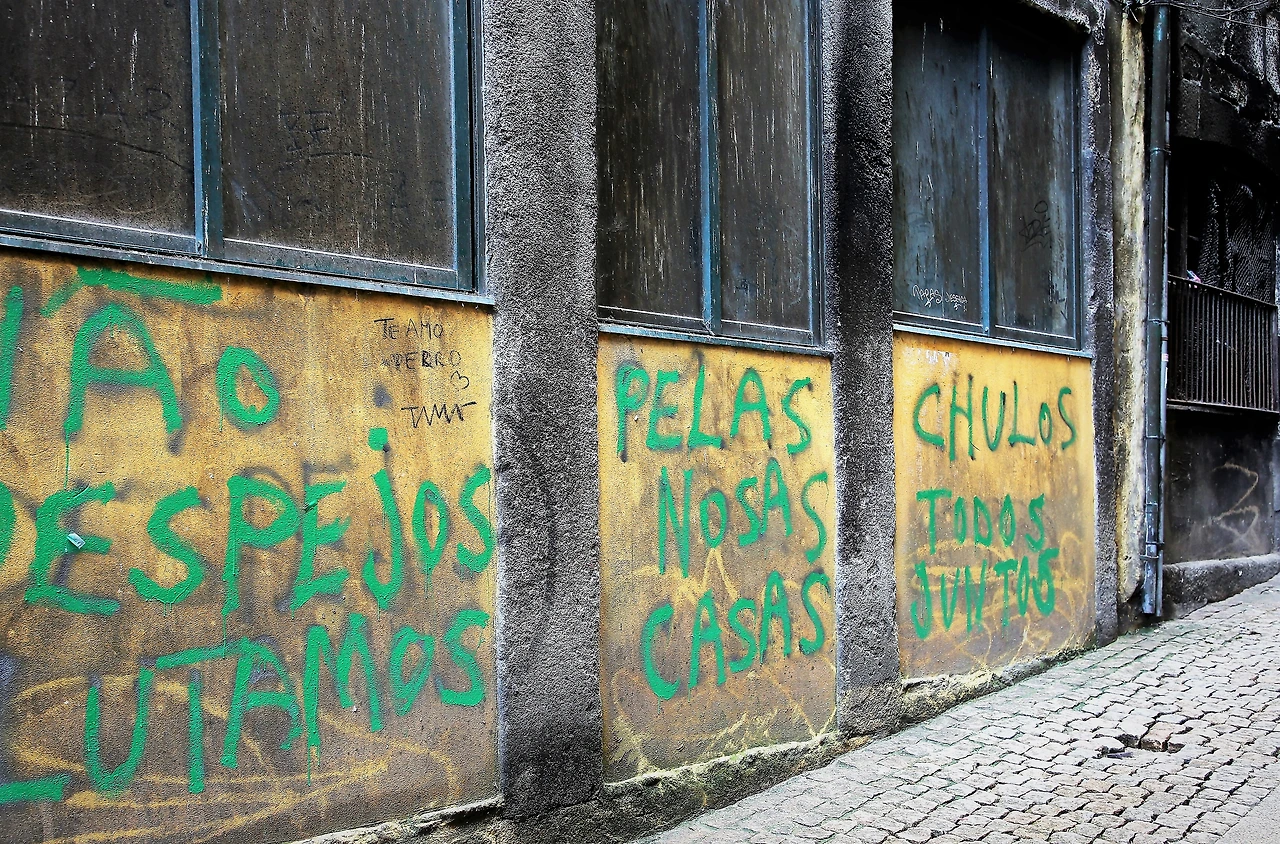 NÃO
DESPEJOS
LUTAMOS
TE AMO
PELAS
NOSAS
CASAS
CHULOS
TODOS
JUNTOS